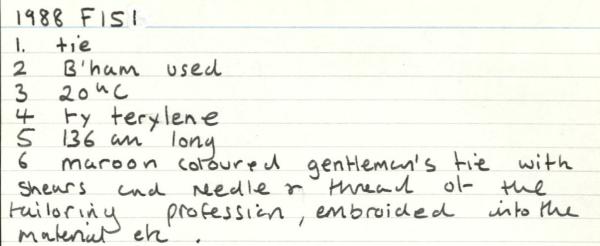 1988 F151
1. tie
2 B'ham used
3 20th C
4 ty terylene
5 136 cm long
6 maroon coloured gentleman's tie with
shears and needle & thread of the
tailoring profession, embroided into the
material etc.